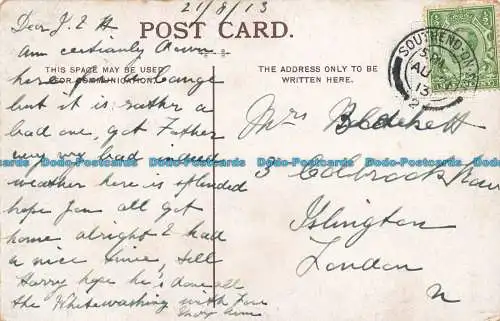 21/8/13
Dear J. E. H
POST CARD.
am certianly down
THIS SPACE MAY BE USED
FOR COMMUNICATION.
THE ADDRESS ONLY TO BE
WRITTEN HERE.
here for a change
but it is rather a
bad one, got Father
very bad and
weather here is splended
hope you all got
home alright & had
a nice time, tell
Harry hope he's done all
the Whitewashing with
SOUTHEND-ON-SEA
AU 21
13
2
Mrs Blackett
3 Colbrook Row
Islington
London
N
Dodo-Postcards Dodo-Postcards Dodo-Postcards Dodo-Postcards